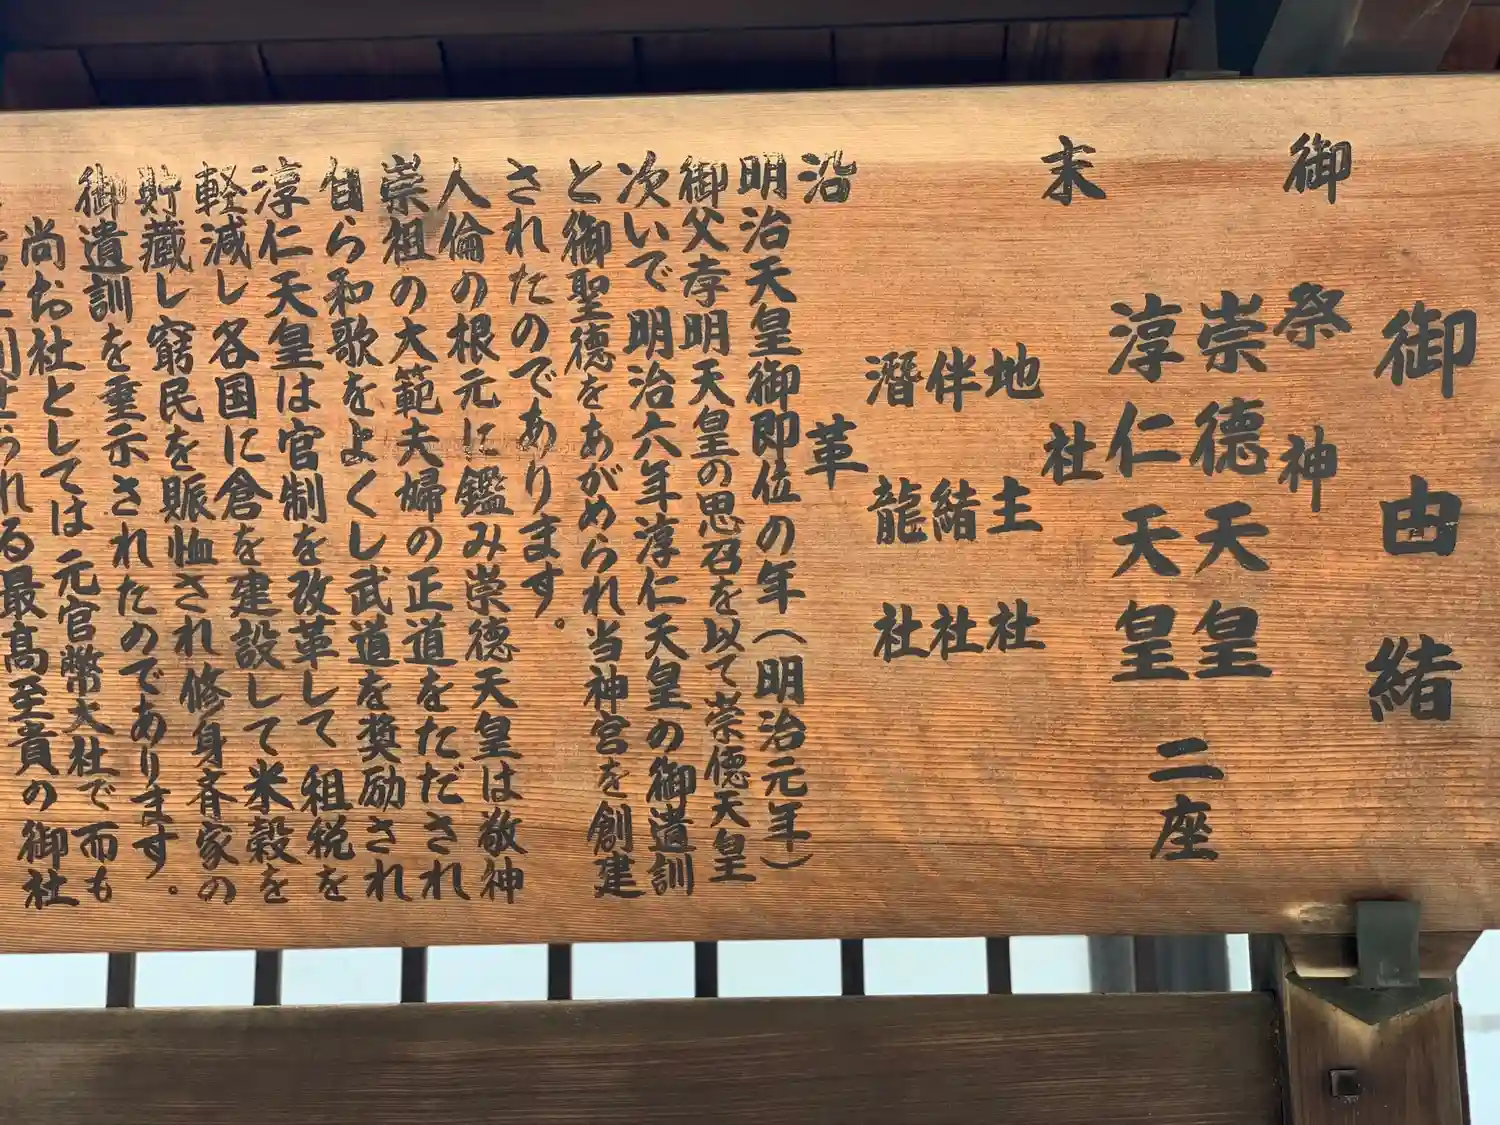 御由緒
御祭神
崇德天皇
淳仁天皇
二座
末社
地主社
伴緒社
潛龍社
沿革
明治天皇御即位の年（明治元年）
御父孝明天皇の思召を以て崇徳天皇
次いで明治六年淳仁天皇の御遺訓
と御聖德をあがめられ当神宮を創建
されたのであります。
人倫の根元に鑑み崇德天皇は敬神
崇祖の大範夫婦の正道をただされ
自ら和歌をよくし武道を奨励され
淳仁天皇は官制を改革して租税を
軽減し各国に倉を建設して米穀を
貯藏し窮民を賑恤され修身斉家の
御遺訓を垂示されたのであります。
尚お社としては元官幣大社で而も
られる最高至貴の御社